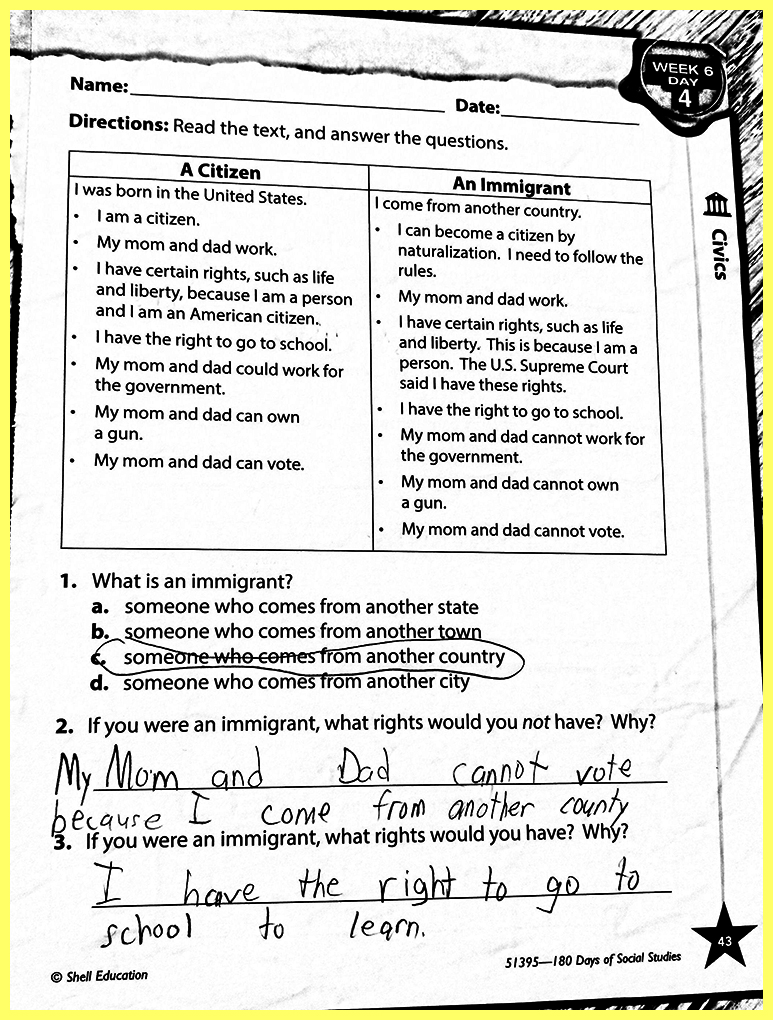 WEEK 6
DAY
4
Name:
Date:
Directions: Read the text, and answer the questions.
A Citizen
I was born in the United States.
• I am a citizen.
• My mom and dad work.
• I have certain rights, such as life
and liberty, because I am a person
and I am an American citizen.
• I have the right to go to school.
• My mom and dad could work for
the government.
• My mom and dad can own
a gun.
• My mom and dad can vote.
An Immigrant
I come from another country.
• I can become a citizen by
naturalization. I need to follow the
rules.
• My mom and dad work.
• I have certain rights, such as life
and liberty. This is because I am a
person. The U.S. Supreme Court
said I have these rights.
• I have the right to go to school.
• My mom and dad cannot work for
the government.
• My mom and dad cannot own
a gun.
• My mom and dad cannot vote.
Civics
1. What is an immigrant?
a. someone who comes from another state
b. someone who comes from another town
c. someone who comes from another country
d. someone who comes from another city
2. If you were an immigrant, what rights would you not have? Why?
My Mom and Dad cannot vote
because I come from another county
3. If you were an immigrant, what rights would you have? Why?
I have the right to go to
school to learn.
43
51395—180 Days of Social Studies
© Shell Education